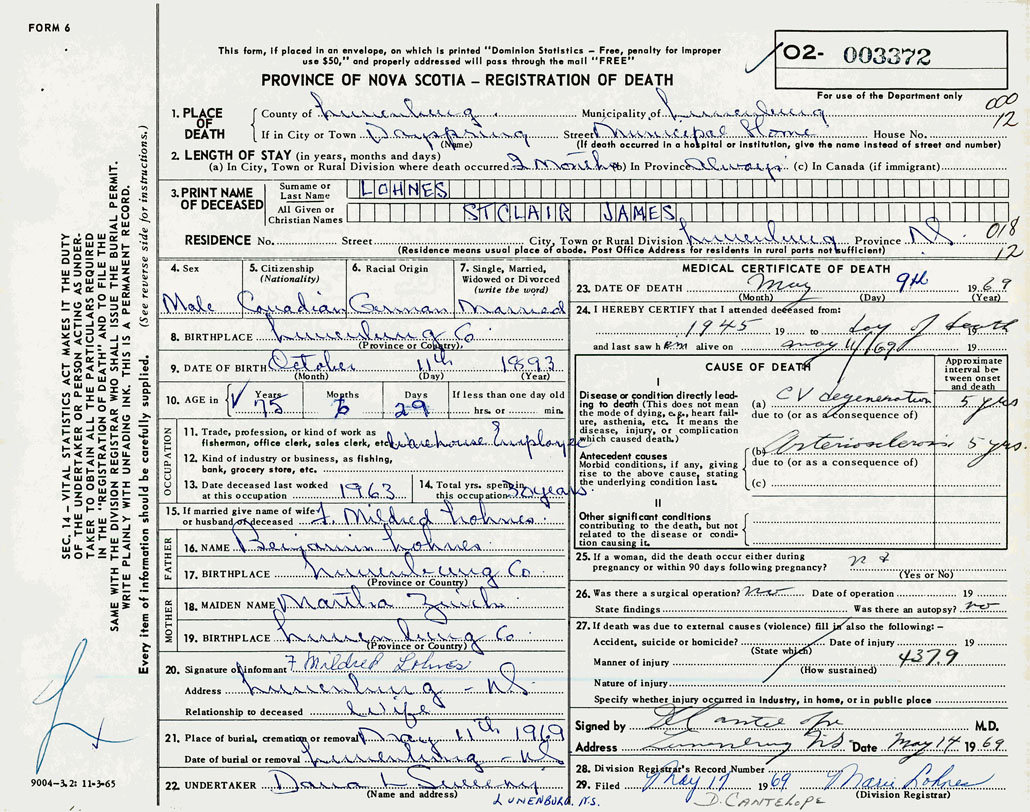 FORM 6
This form, if placed in an envelope, on which is printed "Dominion Statistics – Free, penalty for improper
use $50," and properly addressed will pass through the mail "FREE"
PROVINCE OF NOVA SCOTIA – REGISTRATION OF DEATH
02- 003372
For use of the Department only
000
12
1. PLACE OF DEATH County of Lunenburg Municipality of Lunenburg
If in City or Town Dayspring Street Municipal Home House No.
(Name) (If death occurred in a hospital or institution, give the name instead of street and number)
2. LENGTH OF STAY (in years, months and days)
(a) In City, Town or Rural Division where death occurred 2 Months (b) In Province Always (c) In Canada (if immigrant)
3. PRINT NAME OF DECEASED Surname or Last Name LOHNES
All Given or Christian Names ST CLAIR JAMES
RESIDENCE No. Street City, Town or Rural Division Lunenburg Province N.S. 018
12
(Residence means usual place of abode. Post Office Address for residents in rural parts not sufficient)
4. Sex 5. Citizenship (Nationality) 6. Racial Origin 7. Single, Married, Widowed or Divorced (write the word)
Male Canadian German Married
8. BIRTHPLACE Lunenburg Co
(Province or Country)
9. DATE OF BIRTH October 11th 1893
(Month) (Day) (Year)
10. AGE in Years Months Days If less than one day old
75 6 29 hrs. or min.
OCCUPATION
11. Trade, profession, or kind of work as
fisherman, office clerk, sales clerk, etc. Warehouse Employee
12. Kind of industry or business, as fishing,
bank, grocery store, etc.
13. Date deceased last worked at this occupation 1963 14. Total yrs. spent in this occupation 30 years
15. If married give name of wife or husband of deceased F. Mildred Lohnes
FATHER
16. NAME Benjamin Lohnes
17. BIRTHPLACE Lunenburg Co.
(Province or Country)
MOTHER
18. MAIDEN NAME Martha Zinck
19. BIRTHPLACE Lunenburg Co
(Province or Country)
20. Signature of informant F Mildred Lohnes
Address Lunenburg - N.S.
Relationship to deceased Wife
21. Place of burial, cremation or removal May 11th 1969
Date of burial or removal Lunenburg - N.S.
22. UNDERTAKER Dana L Sweeny
(Name and address)
LUNENBURG, N.S.
MEDICAL CERTIFICATE OF DEATH
23. DATE OF DEATH May 9th 1969
(Month) (Day) (Year)
24. I HEREBY CERTIFY that I attended deceased from:
1945 19 to day of death 19
and last saw h im alive on may 11/69 19
CAUSE OF DEATH
Approximate interval between onset and death
I
Disease or condition directly leading to death (This does not mean the mode of dying, e.g., heart failure, asthenia, etc. It means the disease, injury, or complication which caused death.)
(a) CV degeneration 5 yrs
due to (or as a consequence of)
Antecedent causes
Morbid conditions, if any, giving rise to the above cause, stating the underlying condition last.
(b) Arteriosclerosis 5 yrs.
due to (or as a consequence of)
(c)
II
Other significant conditions contributing to the death, but not related to the disease or condition causing it.
25. If a woman, did the death occur either during
pregnancy or within 90 days following pregnancy?
(Yes or No)
26. Was there a surgical operation? no Date of operation 19
State findings Was there an autopsy? no
27. If death was due to external causes (violence) fill in also the following:–
Accident, suicide or homicide? Date of injury 19
(State which)
Manner of injury 437.9
(How sustained)
Nature of injury
Specify whether injury occurred in industry, in home, or in public place
Signed by M.D.
Address Lunenburg NS Date May 14 1969
28. Division Registrar's Record Number
29. Filed May 17 1969 Marie Lohnes
(Division Registrar)
D. CANTELOPE
SEC. 14 – VITAL STATISTICS ACT MAKES IT THE DUTY
OF THE UNDERTAKER OR PERSON ACTING AS UNDER-
TAKER TO OBTAIN ALL THE PARTICULARS REQUIRED
IN THE "REGISTRATION OF DEATH" AND TO FILE THE
SAME WITH THE DIVISION REGISTRAR WHO SHALL ISSUE THE BURIAL PERMIT.
WRITE PLAINLY WITH UNFADING INK. THIS IS A PERMANENT RECORD.
Every item of information should be carefully supplied. (See reverse side for instructions.)
9004–3.2: 11-3-65